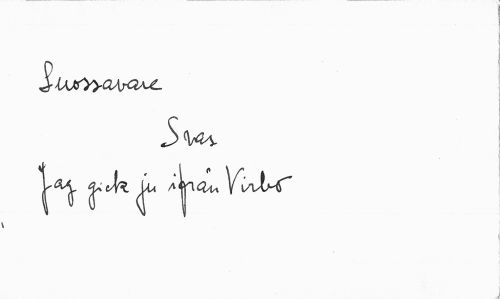 Luossavare
Svas
Jag gick ju ifrån Virbo